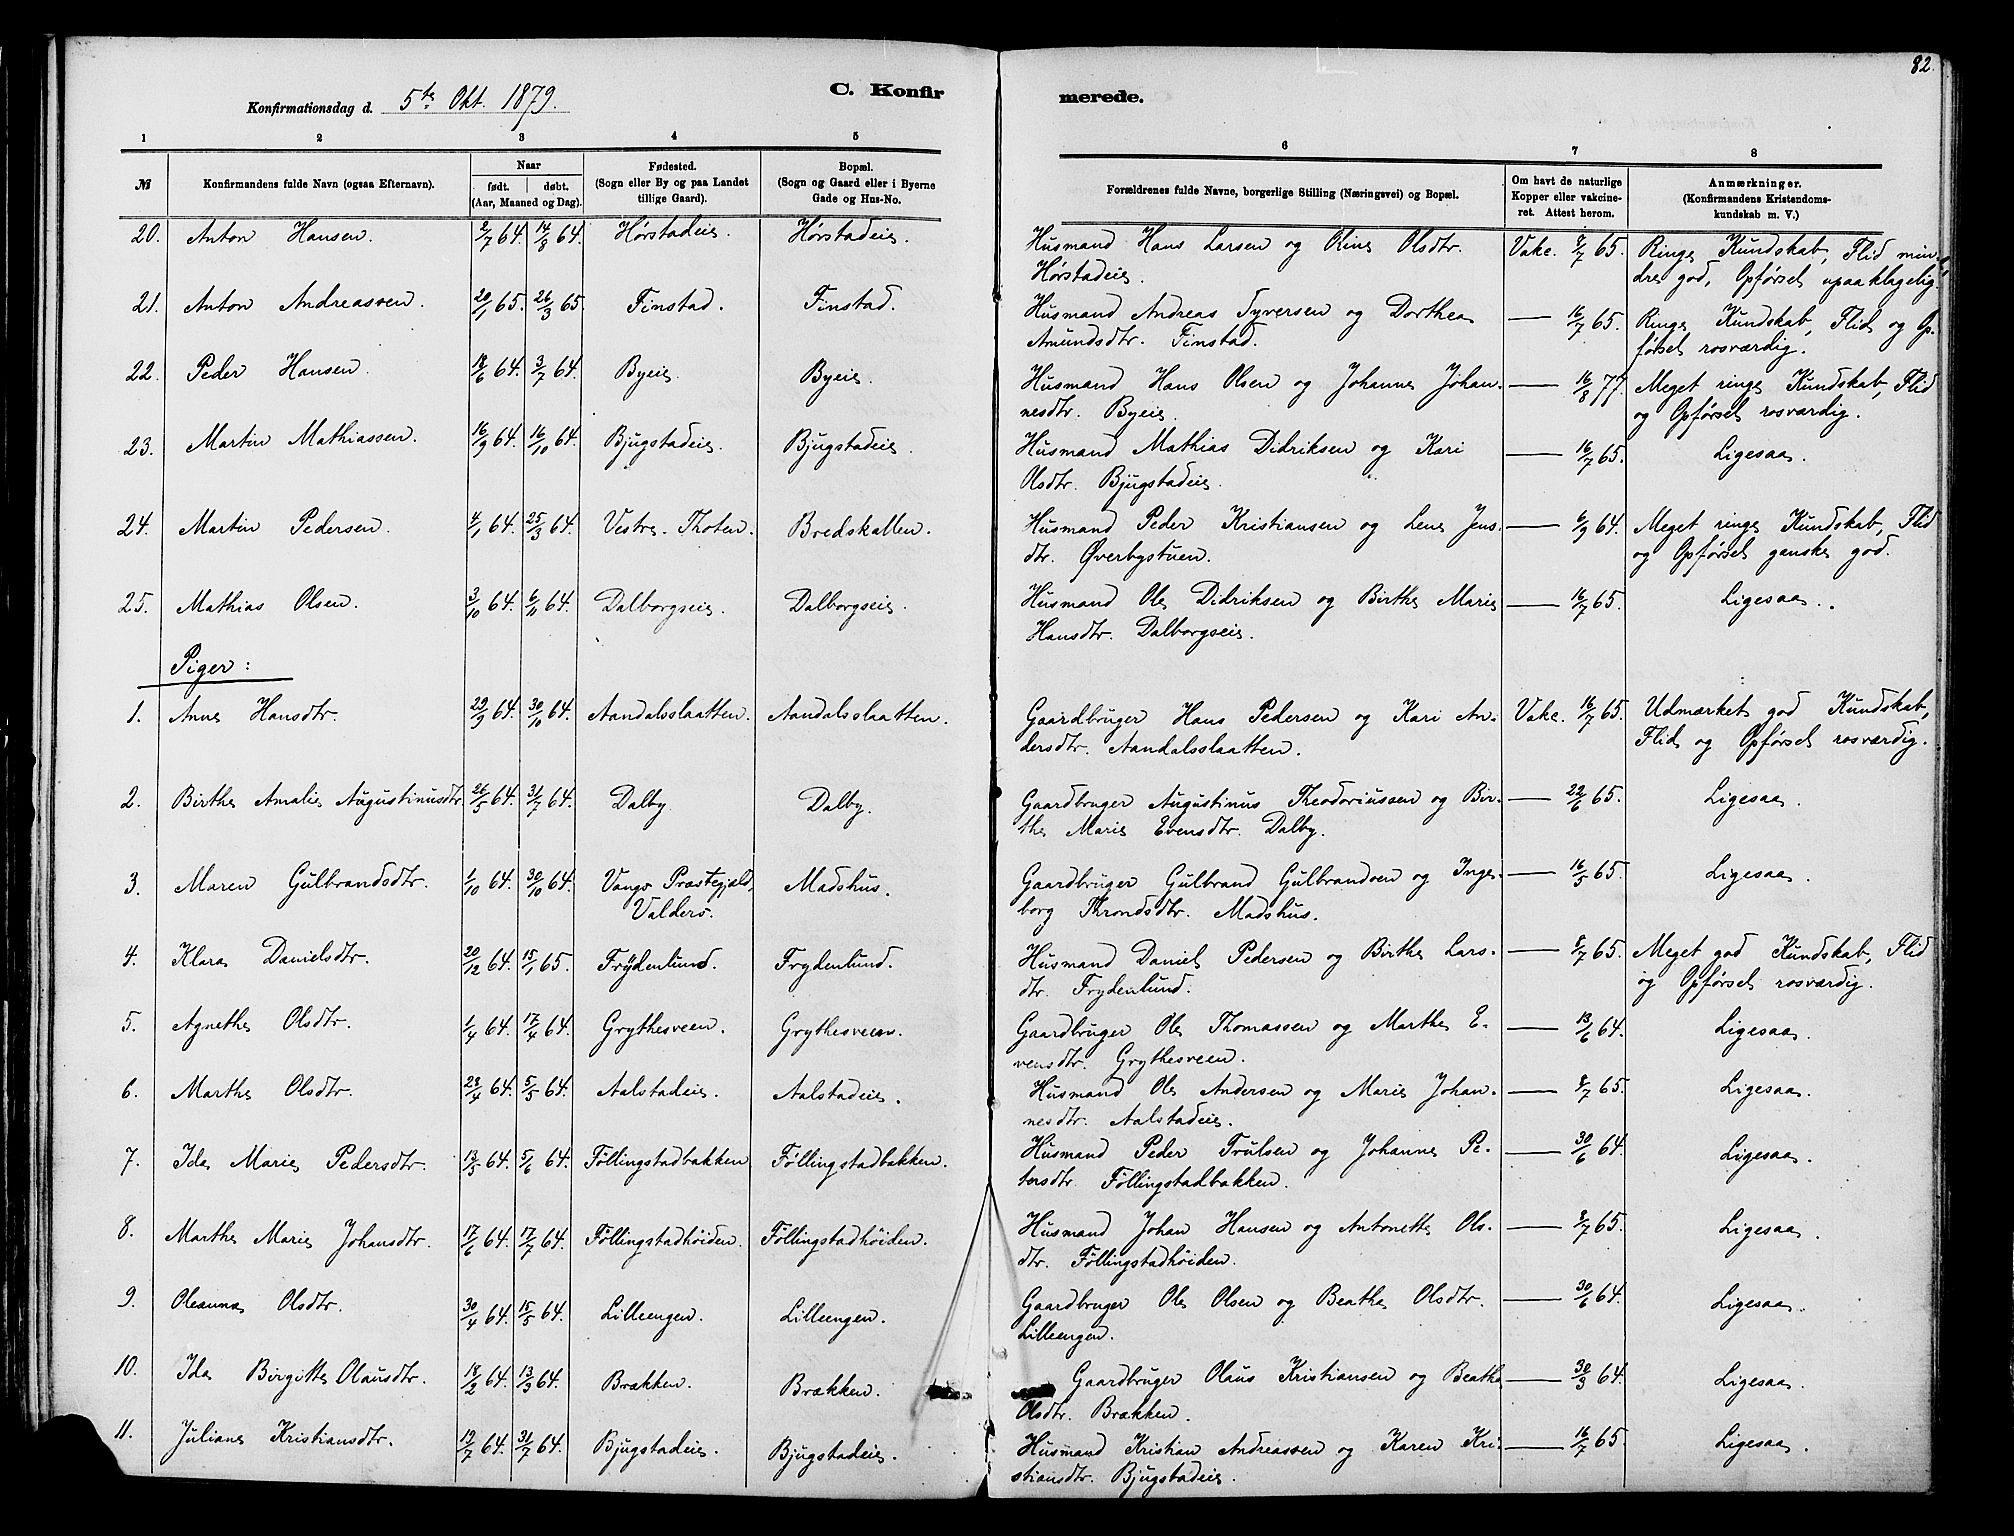 82.
Konfirmationsdag d. 5te Okt. 1879.
C. Konfirmerede.
1 2 3 4 5 6 7 8
№
Konfirmandens fulde Navn (ogsaa Efternavn).
Naar
født. døbt.
(Aar, Maaned og Dag).
Fødested.
(Sogn eller By og paa Landet
tillige Gaard).
Bopæl.
(Sogn og Gaard eller i Byerne
Gade og Hus-No.
Forældrenes fulde Navne, borgerlige Stilling (Næringsvei) og Bopæl.
Om havt de naturlige
Kopper eller vakcine-
ret. Attest herom.
Anmærkninger.
(Konfirmandens Kristendoms-
kundskab m. V.)
20. Anton Hansen. 2/7 64. 14/8 64. Hørstadeie. Hørstadeie. Husmand Hans Larsen og Oline Olsdtr. Vakc. 9/7 65. Ringe Kundskab, Flid min-
Hørstadeie. dre god, Opførsel upaaklagelig.
21. Anton Andreassen. 20/1 65. 26/3 65. Finstad. Finstad. Husmand Andreas Syversen og Dorthea — 16/7 65. Ringe Kundskab, Flid og Op-
Amundsdtr. Finstad. førsel rosværdig.
22. Peder Hansen. 18/6 64. 3/7 64. Byeie. Byeie. Husmand Hans Olsen og Johanne Johan- — 16/8 77. Meget ringe Kundskab, Flid
nesdtr. Byeie. og Opførsel rosværdig.
23. Martin Mathiassen. 16/9 64. 16/10 64. Bjugstadeie. Bjugstadeie. Husmand Mathias Didriksen og Kari — 16/7 65. Ligesaa.
Olsdtr. Bjugstadeie.
24. Martin Pedersen. 4/1 64. 25/3 64. Vestre Thoten. Bredskallen. Husmand Peder Kristiansen og Lene Jens- — 6/9 64. Meget ringe Kundskab, Flid
dtr. Øverbystuen. og Opførsel ganske god.
25. Mathias Olsen. 3/10 64. 6/11 64. Dalborgseie. Dalborgseie. Husmand Ole Didriksen og Birthe Marie — 16/7 65. Ligesaa.
Hansdtr. Dalborgseie.
Piger:
1. Anne Hansdtr. 29/9 64. 30/10 64. Aandalsslaatten. Aandalsslaatten. Gaardbruger Hans Pedersen og Kari An- Vakc. 16/7 65. Udmærket god Kundskab,
dersdtr. Aandalsslaatten. Flid og Opførsel rosværdig.
2. Birthe Amalie Augustinusdtr. 26/5 64. 31/7 64. Dalby. Dalby. Gaardbruger Augustinus Theodoriussen og Bir- — 22/6 65. Ligesaa.
the Marie Evensdtr. Dalby.
3. Maren Gulbrandsdtr. 1/10 64. 30/10 64. Vangs Præstegjæld, Madshus. Gaardbruger Gulbrand Gulbrandsen og Inge- — 16/5 65. Ligesaa.
Valders. borg Throndsdtr. Madshus.
4. Klara Danielsdtr. 20/12 64. 15/1 65. Frydenlund. Frydenlund. Husmand Daniel Pedersen og Birthe Lars- — 8/7 65. Meget god Kundskab, Flid
dtr. Frydenlund. og Opførsel rosværdig.
5. Agnethe Olsdtr. 1/4 64. 17/4 64. Grythesveen. Grythesveen. Gaardbruger Ole Thomassen og Marthe E- — 13/6 64. Ligesaa.
vensdtr. Grythesveen.
6. Marthe Olsdtr. 23/4 64. 5/5 64. Aalstadeie. Aalstadeie. Husmand Ole Andersen og Marie Johan- — 8/7 65. Ligesaa.
nesdtr. Aalstadeie.
7. Ida Marie Pedersdtr. 13/5 64. 5/6 64. Föllingstadbakken Föllingstadbakken. Husmand Peder Trulsen og Johanne Pe- — 30/6 64. Ligesaa.
tersdtr. Föllingstadbakken.
8. Marthe Marie Johansdtr. 17/6 64. 17/7 64. Föllingstadhöiden. Föllingstadhöiden. Husmand Johan Hansen og Antonette Ols- — 8/7 65. Ligesaa.
dtr. Föllingstadhöiden.
9. Oleanna Olsdtr. 30/4 64. 15/5 64. Lilleengen. Lilleengen. Gaardbruger Ole Olsen og Beathe Olsdtr. — 30/6 64. Ligesaa.
Lilleengen.
10. Ida Birgitte Olausdtr. 18/2 64. 13/3 64. Brækken. Brækken. Gaardbruger Olaus Kristiansen og Beathe — 30/3 64. Ligesaa.
Olsdtr. Brækken.
11. Juliane Kristiansdtr. 12/7 64. 31/7 64. Bjugstadeie. Bjugstadeie. Husmand Kristian Andreassen og Karen Kri- — 16/7 65. Ligesaa.
stiansdtr. Bjugstadeie.